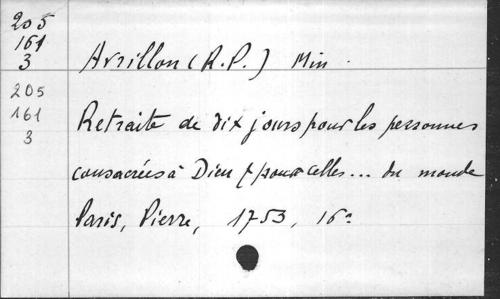 205
161
3
Avrillon (R.P.) Min.
205
161
3
Retraite de dix jours pour les personnes
consacrées à Dieu & pour celles... du monde
Paris, Pierre, 1753, 16°